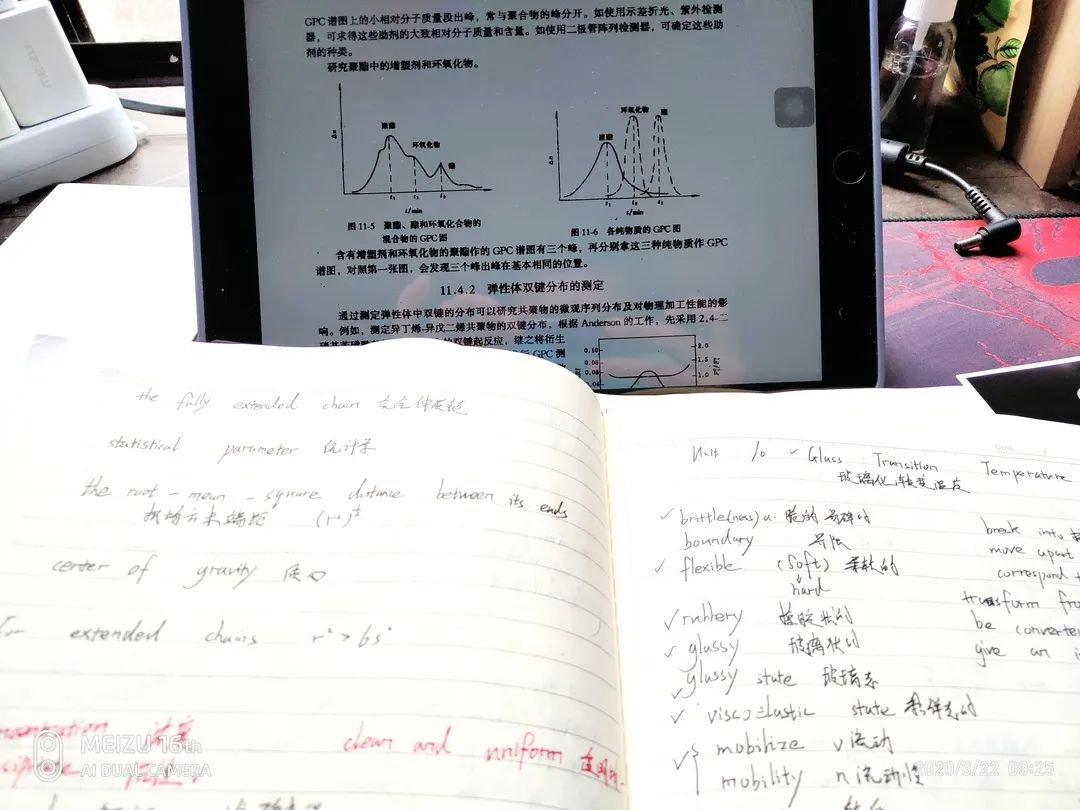 GPC 谱图上的小相对分子质量段出峰，常与聚合物的峰分开。如使用示差折光、紫外检测
器，可求得这些助剂的大致相对分子质量和含量。如使用二极管阵列检测器，可确定这些助
剂的种类。
研究聚酯中的增塑剂和环氧化物。
Δn
聚酯
环氧化物
酯
t₁
t₂
t₃
t/min
图 11-5 聚酯、酯和环氧化合物的
混合物的 GPC 图
Δn
聚酯
环氧化物
酯
t₁
t₂
t₃
t/min
图 11-6 各纯物质的 GPC 图
含有增塑剂和环氧化物的聚酯作的 GPC 谱图有三个峰，再分别拿这三种纯物质作 GPC
谱图，对照第一张图，会发现三个峰出峰在基本相同的位置。
11.4.2 弹性体双键分布的测定
通过测定弹性体中双键的分布可以研究共聚物的微观序列分布及对物理加工性能的影
响。例如，测定异丁烯-异戊二烯共聚物的双键分布，根据 Anderson 的工作，先采用 2,4-二
双键起反应，继之将衍生
GPC 测
0.10
0.08
0.06
0.04
2.0
1.5
1.0
the fully extended chain 完全伸展链
statistical parameter 统计学
the root-mean-square distance between its ends
根均方末端距 (r²)½
center of gravity 质心
For extended chains r² > 6s²
浓度
clear and uniform 透明的
Unit 10 ✓ Glass Transition Temperature
玻璃化转变温度
✓ brittle(ness) a. 脆的 易碎的
boundary 界限
✓ flexible (soft) 柔软的
hard
✓ rubbery 橡胶状的
✓ glassy 玻璃状的
✓ glassy state 玻璃态
✓ viscoelastic state 黏弹态的
✓ mobilize v 流动
mobility n 流动性
break into
move apart
correspond
transform from
be converted
give an
MEIZU
MEIZU 16th
AI DUAL CAMERA
2020/3/22 09:25